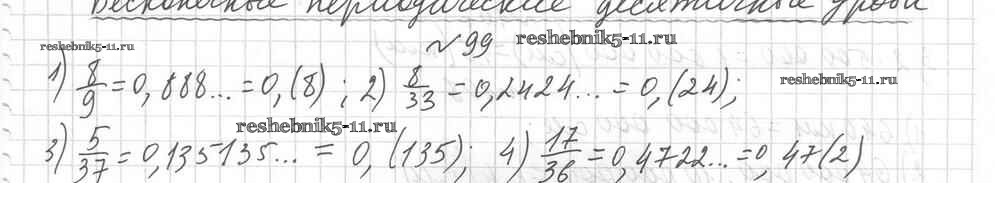 Бесконечные периодические десятичные дроби
reshebnik5-11.ru №99 reshebnik5-11.ru
1) 8/9 = 0,888... = 0,(8) ; 2) 8/33 = 0,2424... = 0,(24);
reshebnik5-11.ru
reshebnik5-11.ru
3) 5/37 = 0,135135... = 0,(135); 4) 17/36 = 0,4722... = 0,47(2)